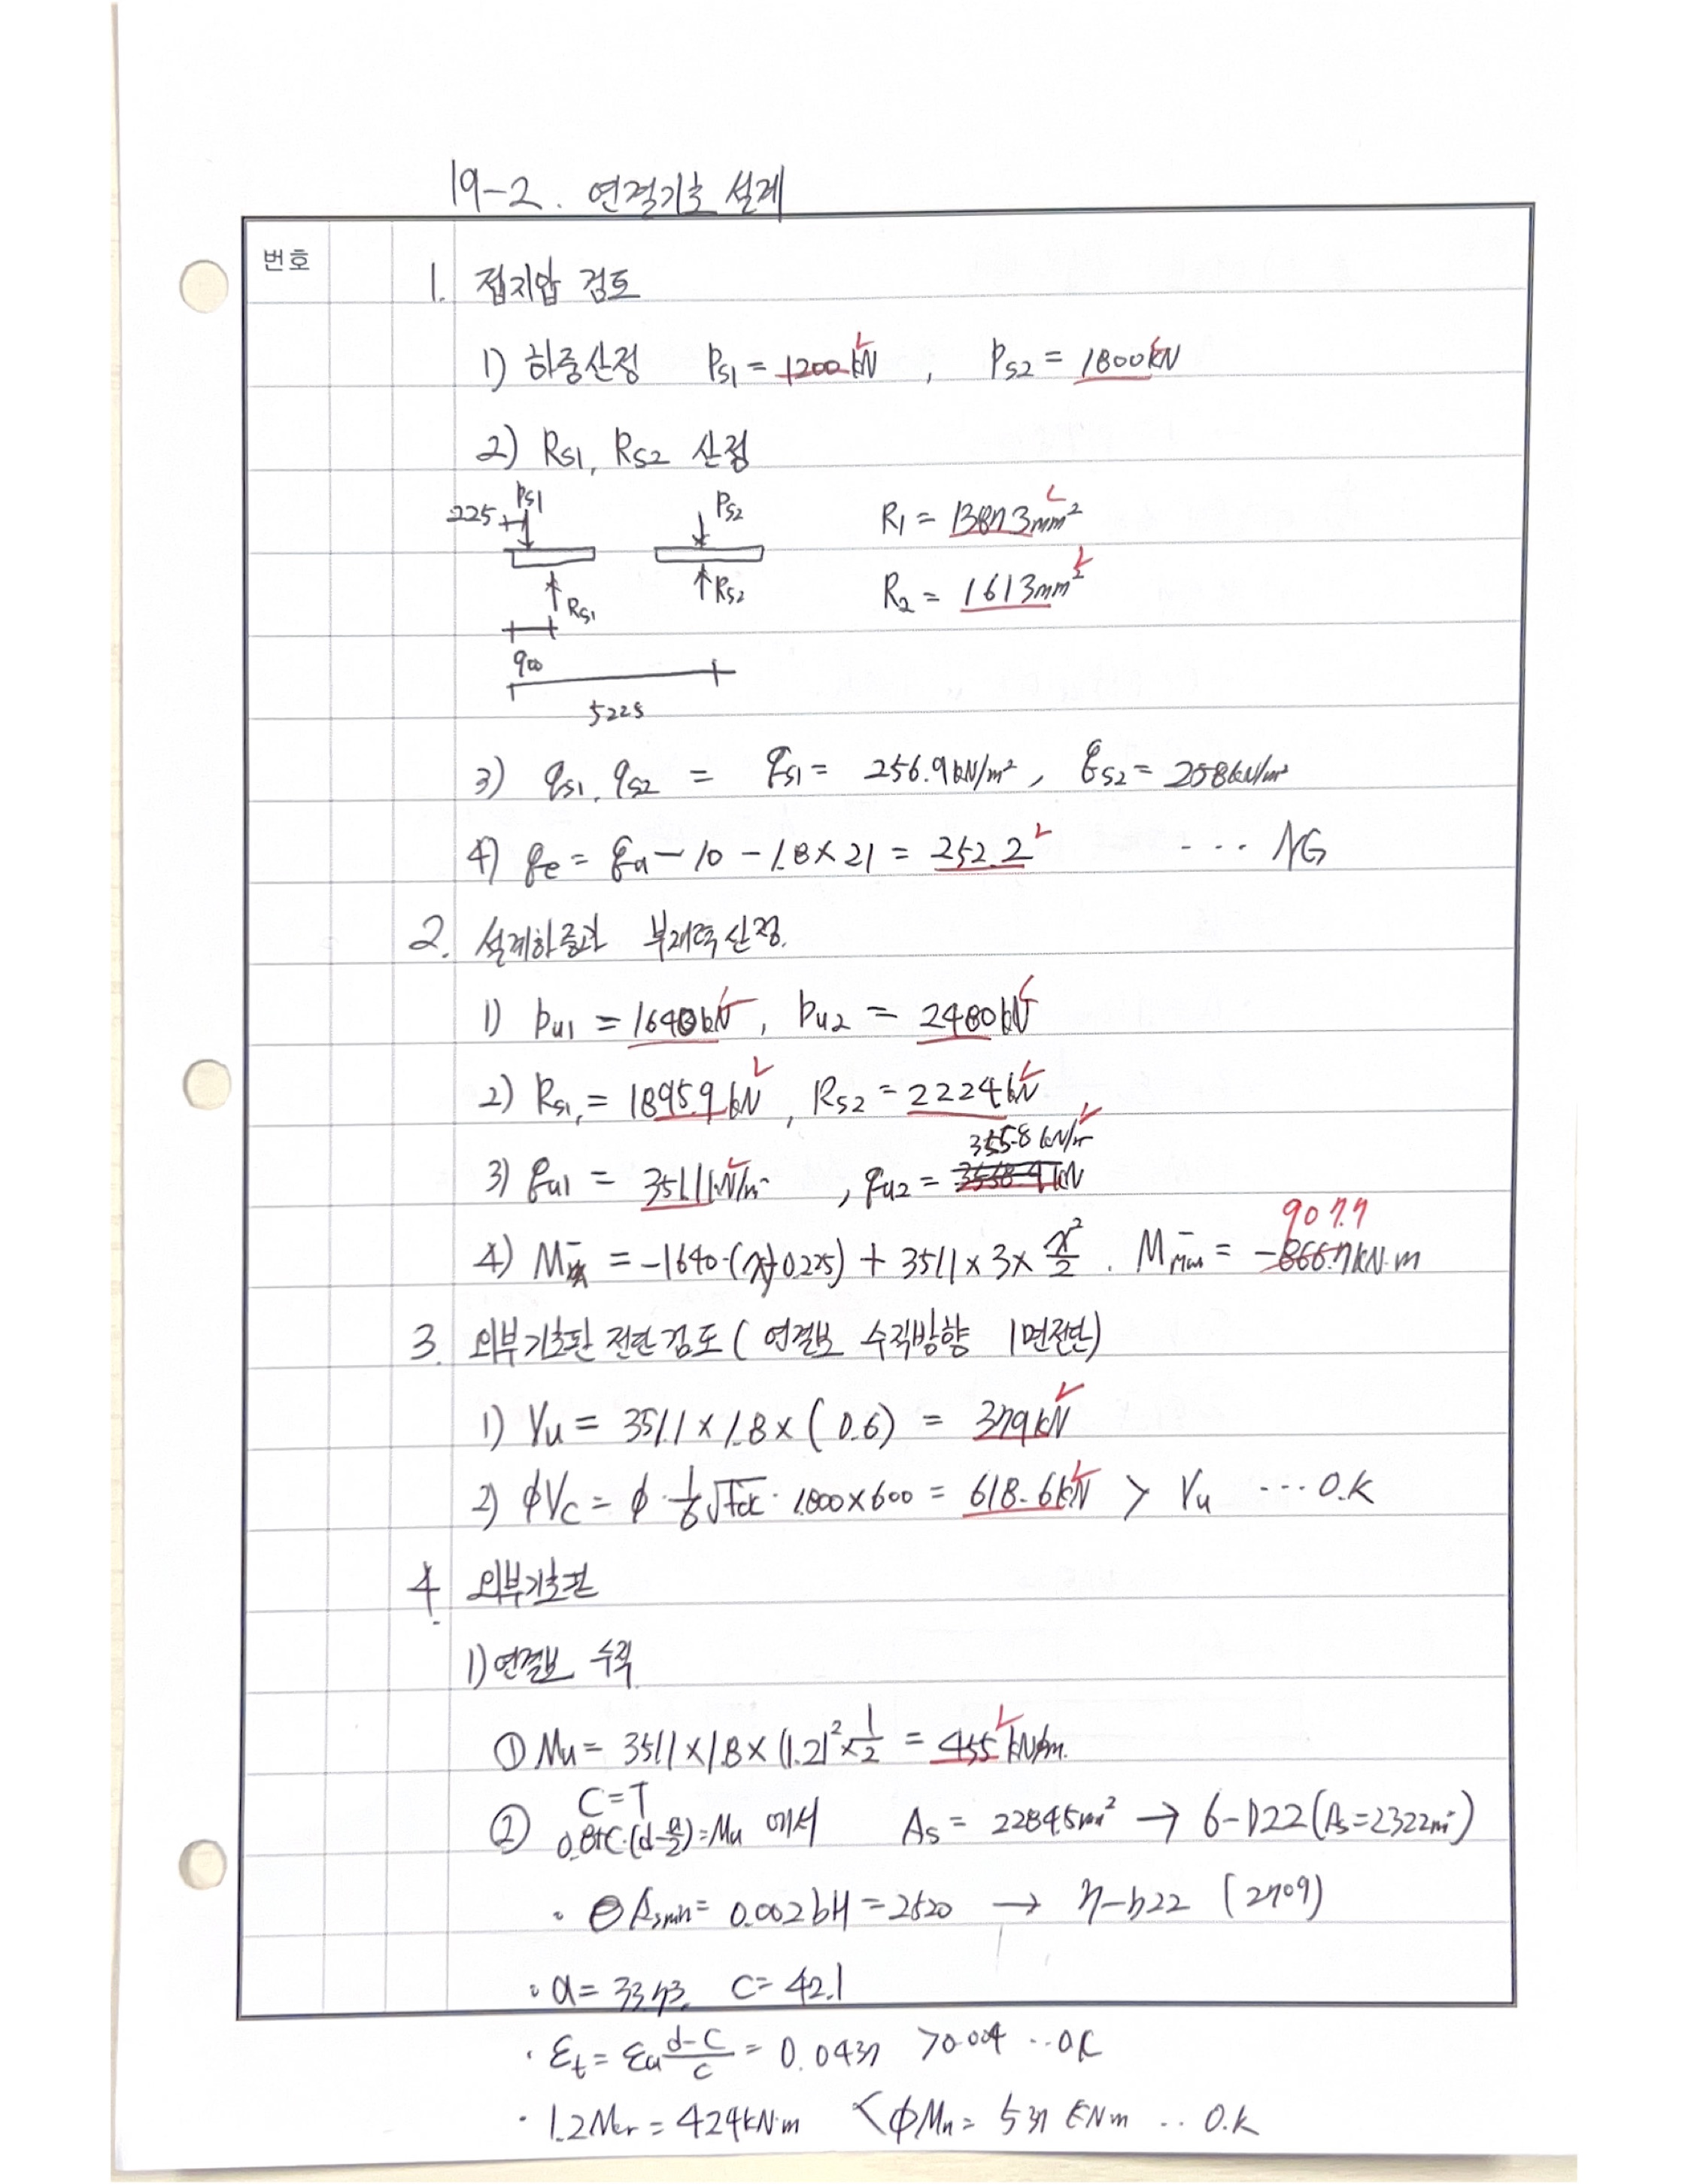 19-2. 연결기초 설계
번호
1. 접지압 검토
1) 하중산정 Ps1 = 1200kN , Ps2 = 1800kN
2) Rs1, Rs2 산정
225 Ps1 Ps2 R1 = 1387.3mm²
Rs1 Rs2 R2 = 1613mm²
900
5225
3) qs1, qs2 = qs1 = 256.9kN/m², qs2 = 258kN/m²
4) qe = qa - 10 - 1.8×21 = 252.2 ... NG
2. 설계하중과 부재력산정.
1) Pu1 = 1640kN, Pu2 = 2480kN
2) Rs1, = 1895.9kN, Rs2 = 2224kN
3) qu1 = 351.1kN/m² , qu2 = 355.8 kN/m²
4) M̄x = -1640·(x+0.225) + 351.1×3×x²/2 . M̄max = -866.7kN·m 907.7
3. 외부기초판 전단검토 ( 연결보 수직방향 1면전단)
1) Vu = 351.1×1.8×(0.6) = 379kN
2) ϕVc = ϕ·1/6√fck·1,800×600 = 618.6kN > Vu ...O.K
4. 외부기초판
1) 연결보 수직
① Mu = 351.1×1.8×(1.2)²×1/2 = 455kN·m.
② C=T
0.85C·(d-a/2)=Mu 에서 As = 2284.5mm² → 6-D22(As=2322㎟)
· As,min = 0.002bH = 2520 → 7-D22 (2709)
· a = 33.73, c = 42.1
· εt = εu (d-c)/c = 0.0437 >0.004 ..OK
· 1.2Mcr = 424kN·m < ϕMn = 537 kNm .. O.K